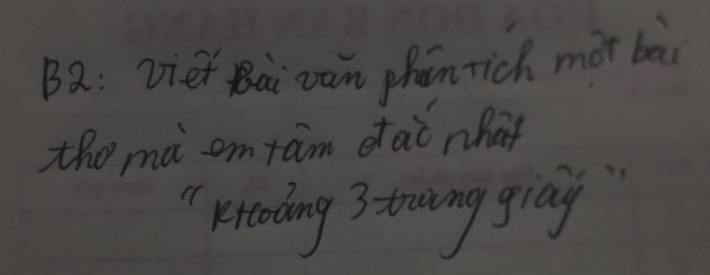 B2: Viết bài văn phân tích một bài
thơ mà em tâm đắc nhất
"Khoảng 3 trang giấy"